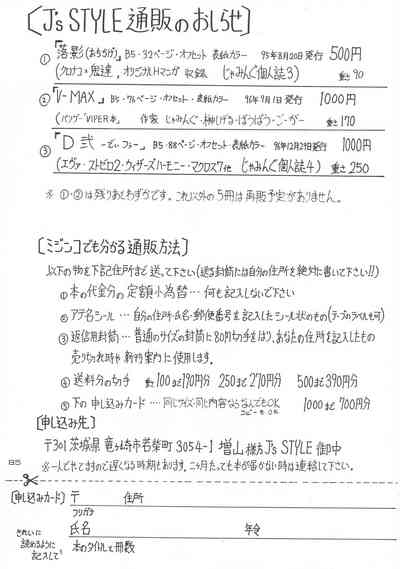 〔J's STYLE 通販のおしらせ〕
① 「落影(おちかげ)」 B5・32ページ・オフセット 表紙カラー 95年8月20日発行 500円
(クロナコ・鬼達, オリジナルHマンガ 収録 じゃみんぐ個人誌3) 重さ90
② 「V-MAX」 B5・76ページ・オフセット・表紙カラー 96年9月1日発行 1000円
(バンプ―"VIPER本, 作家 じゃみんぐ・榊しげる・ばうばう・ごーが― 重さ170
③ 「D弐 ―でぃふた―」 B5・88ページ・オフセット・表紙カラー 96年12月29日発行 1000円
(エヴァ・ストゼロ2・ウィザーズハーモニー・マクロス7他 じゃみんぐ個人誌4) 重さ250
※ ①・②は残りあとわずかです。これ以外の5冊は再販予定がありません。
〔ミジンコでも分かる通販方法〕
以下の物を下記住所まで送って下さい(送る封筒には自分の住所を絶対に書いて下さい!!)
① 本の代金分の定額小為替… 何も記入しないで下さい
② アテ名シール… 自分の住所・氏名・郵便番号を記入したシール状のもの(テープのラベルも可)
③ 返信用封筒… 普通のサイズの封筒に80円切手をはり、あなたの住所を記入したもの
売りきれ時や新刊案内に使用します。
④ 送料分の切手 重100まで190円分 250まで270円分 500まで390円分
⑤ 下の申し込みカード… 同じサイズ・同じ内容ならなんでもOK 1000まで700円分
コピーもOK
〔申し込み先〕
〒301 茨城県竜ヶ崎市若葉町3054-1 増山様方 J's STYLE 御中
※一人でやってますので遅くなる時期もあります。二ヶ月たっても本が届かない時は連絡して下さい。
B5
〔申し込みカード〕 〒 住所
フリガナ
氏名 年令
きれいに
読めるように
記入して
本のタイトルと冊数